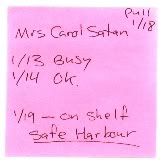 Pull
1/18
Mrs Carol Satan
1/13 Busy
1/14 OK.
1/19 — on shelf
Safe Harbour